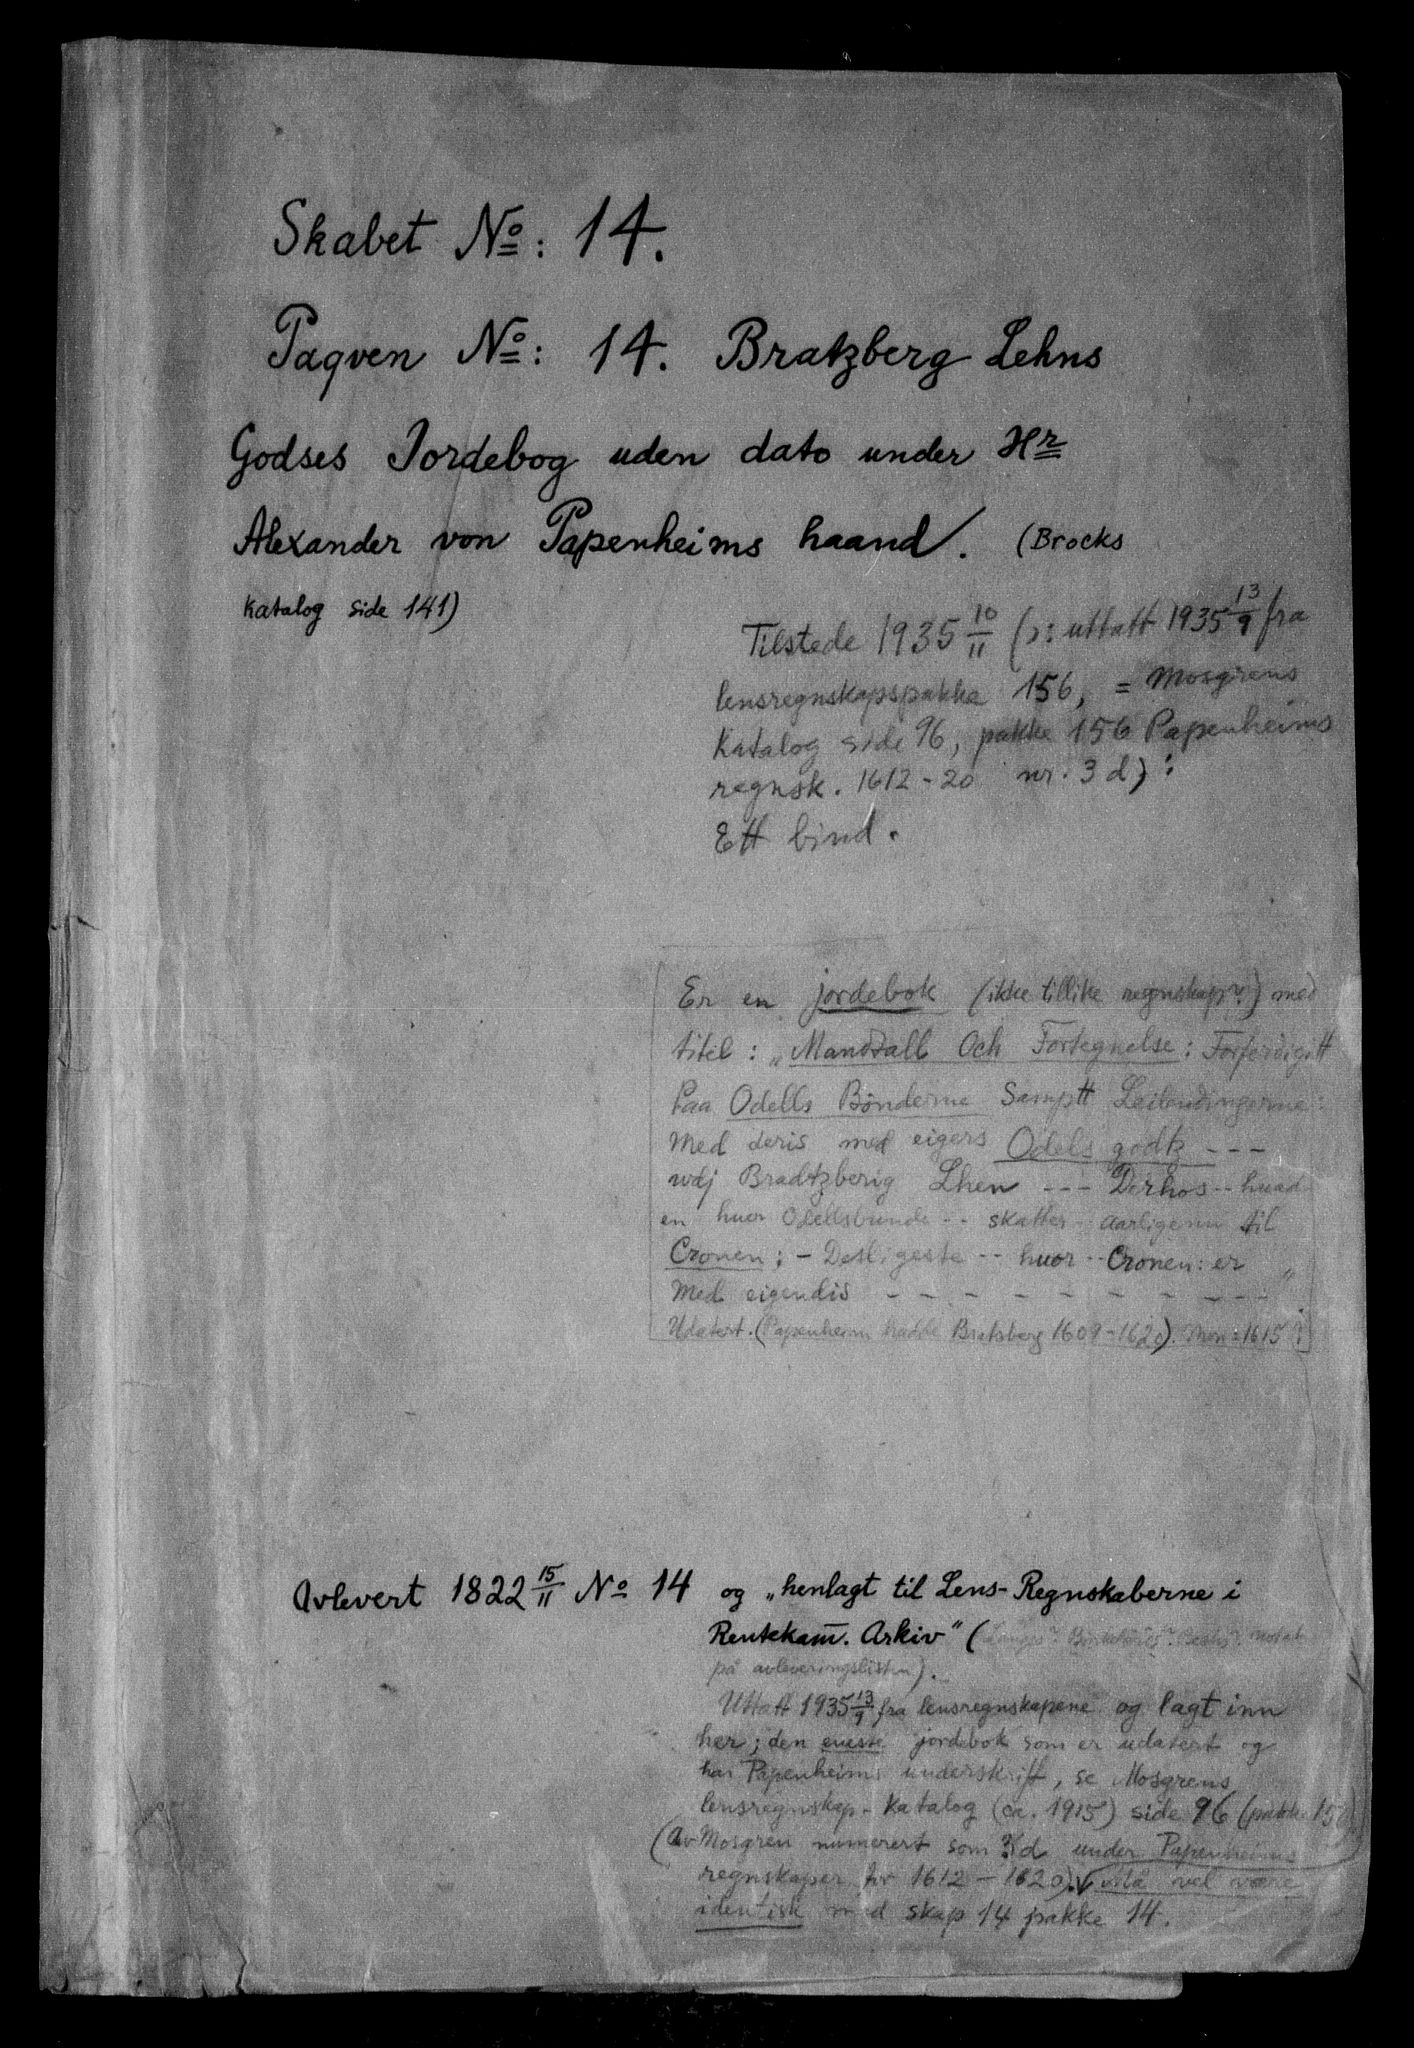 Skabet No: 14.
Paqven No: 14. Bratzberg Lehns
Godses Jordebog uden dato under Hr
Alexander von Papenheims haand. (Brocks
Katalog side 141)
Tilstede 1935 10/11 (ɔ: uttatt 1935 13/9 fra
lensregnskapspakke 156, = Mosgrens
Katalog side 96, pakke 156 Papenheims
regnsk. 1612-20 nr. 3 d):
Ett bind.
Er en jordebok (ikke tillike regnskap?) med
titel: „Mandtall Och Fortegnelse: Forferdigitt
Paa Odells Bønderne Samptt Leilendingerne:
Med deris med eigers Odels godtz ---
wdj Bradtzberig Lhen --- Derhos -- huad
en huer Odellsbunde -- skatter - aarligenn til
Cronen; - Desligeste -- huor -- Cronen: er
Med eigendis - - - - - - - - - "
Udatert. (Papenheim hadde Bratsberg 1609-1620). Men = 1615?
Avlevert 1822 15/11 No 14 og „henlagt til Lens-Regnskaberne i
Rentekam̅. Arkiv" ( notat
på avleveringslisten).
Uttatt 1935 13/9 fra lensregnskapene og lagt inn
her; den eneste jordebok som er udatert og
har Papenheims underskrift, se Mosgrens
lensregnskap-Katalog (ca. 1915) side 96 (pakke 156)
(Av Mosgren numerert som 3/d under Papenheims
regnskaper for 1612-1620). Må vel være
identisk med skap 14 pakke 14.